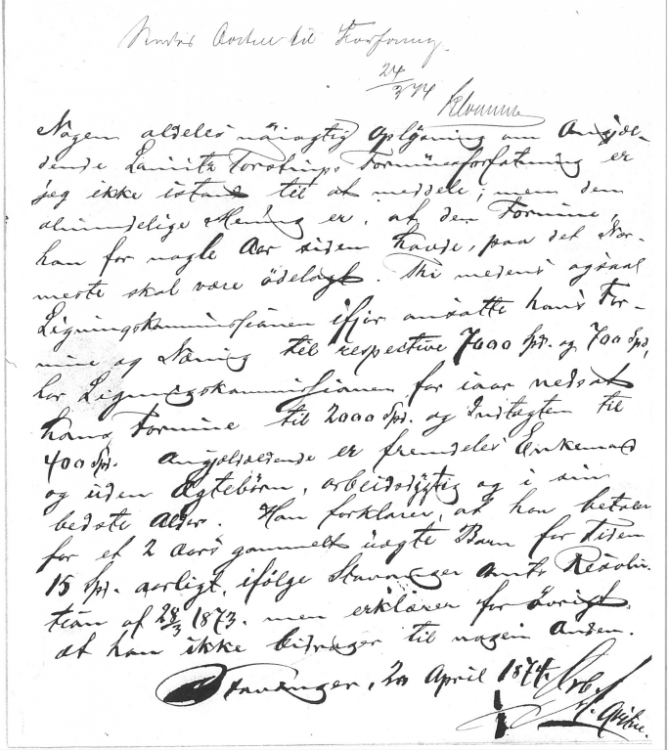 til Forfang.
24/3 74
Nogen aldeles nöiagtig Oplysning om Angjæl-
dende Lauritz Torstrups Formuesforfatning er
jeg ikke istand til at meddele; men den
almindelige Mening er, at den Formue,
han for nogle Aar siden havde, paa det Nær-
meste skal være ödelagt. Thi medens ogsaa
Ligningskommissionen ifjor ansatte hans For-
mue og Næring til respective 7000 Spd. og 700 Spd,
har Ligningskommissionen for iaar nedsat
hans Formue til 2000 Spd. og Indtægten til
400 Spd. Angjældende er fremdeles Enkemand
og uden Ægtebörn, arbeidsdygtig og i sin
bedste Alder. Han forklarer, at han betaler
for et 2 Aars gammelt uægte Barn for Tiden
15 Spd. aarligt, ifölge Stavanger Amts Resolu-
tion af 28/3 1873. men erklærer for övrigt,
at han ikke bidrager til nogen Anden.
Stavanger, 20 April 1874.